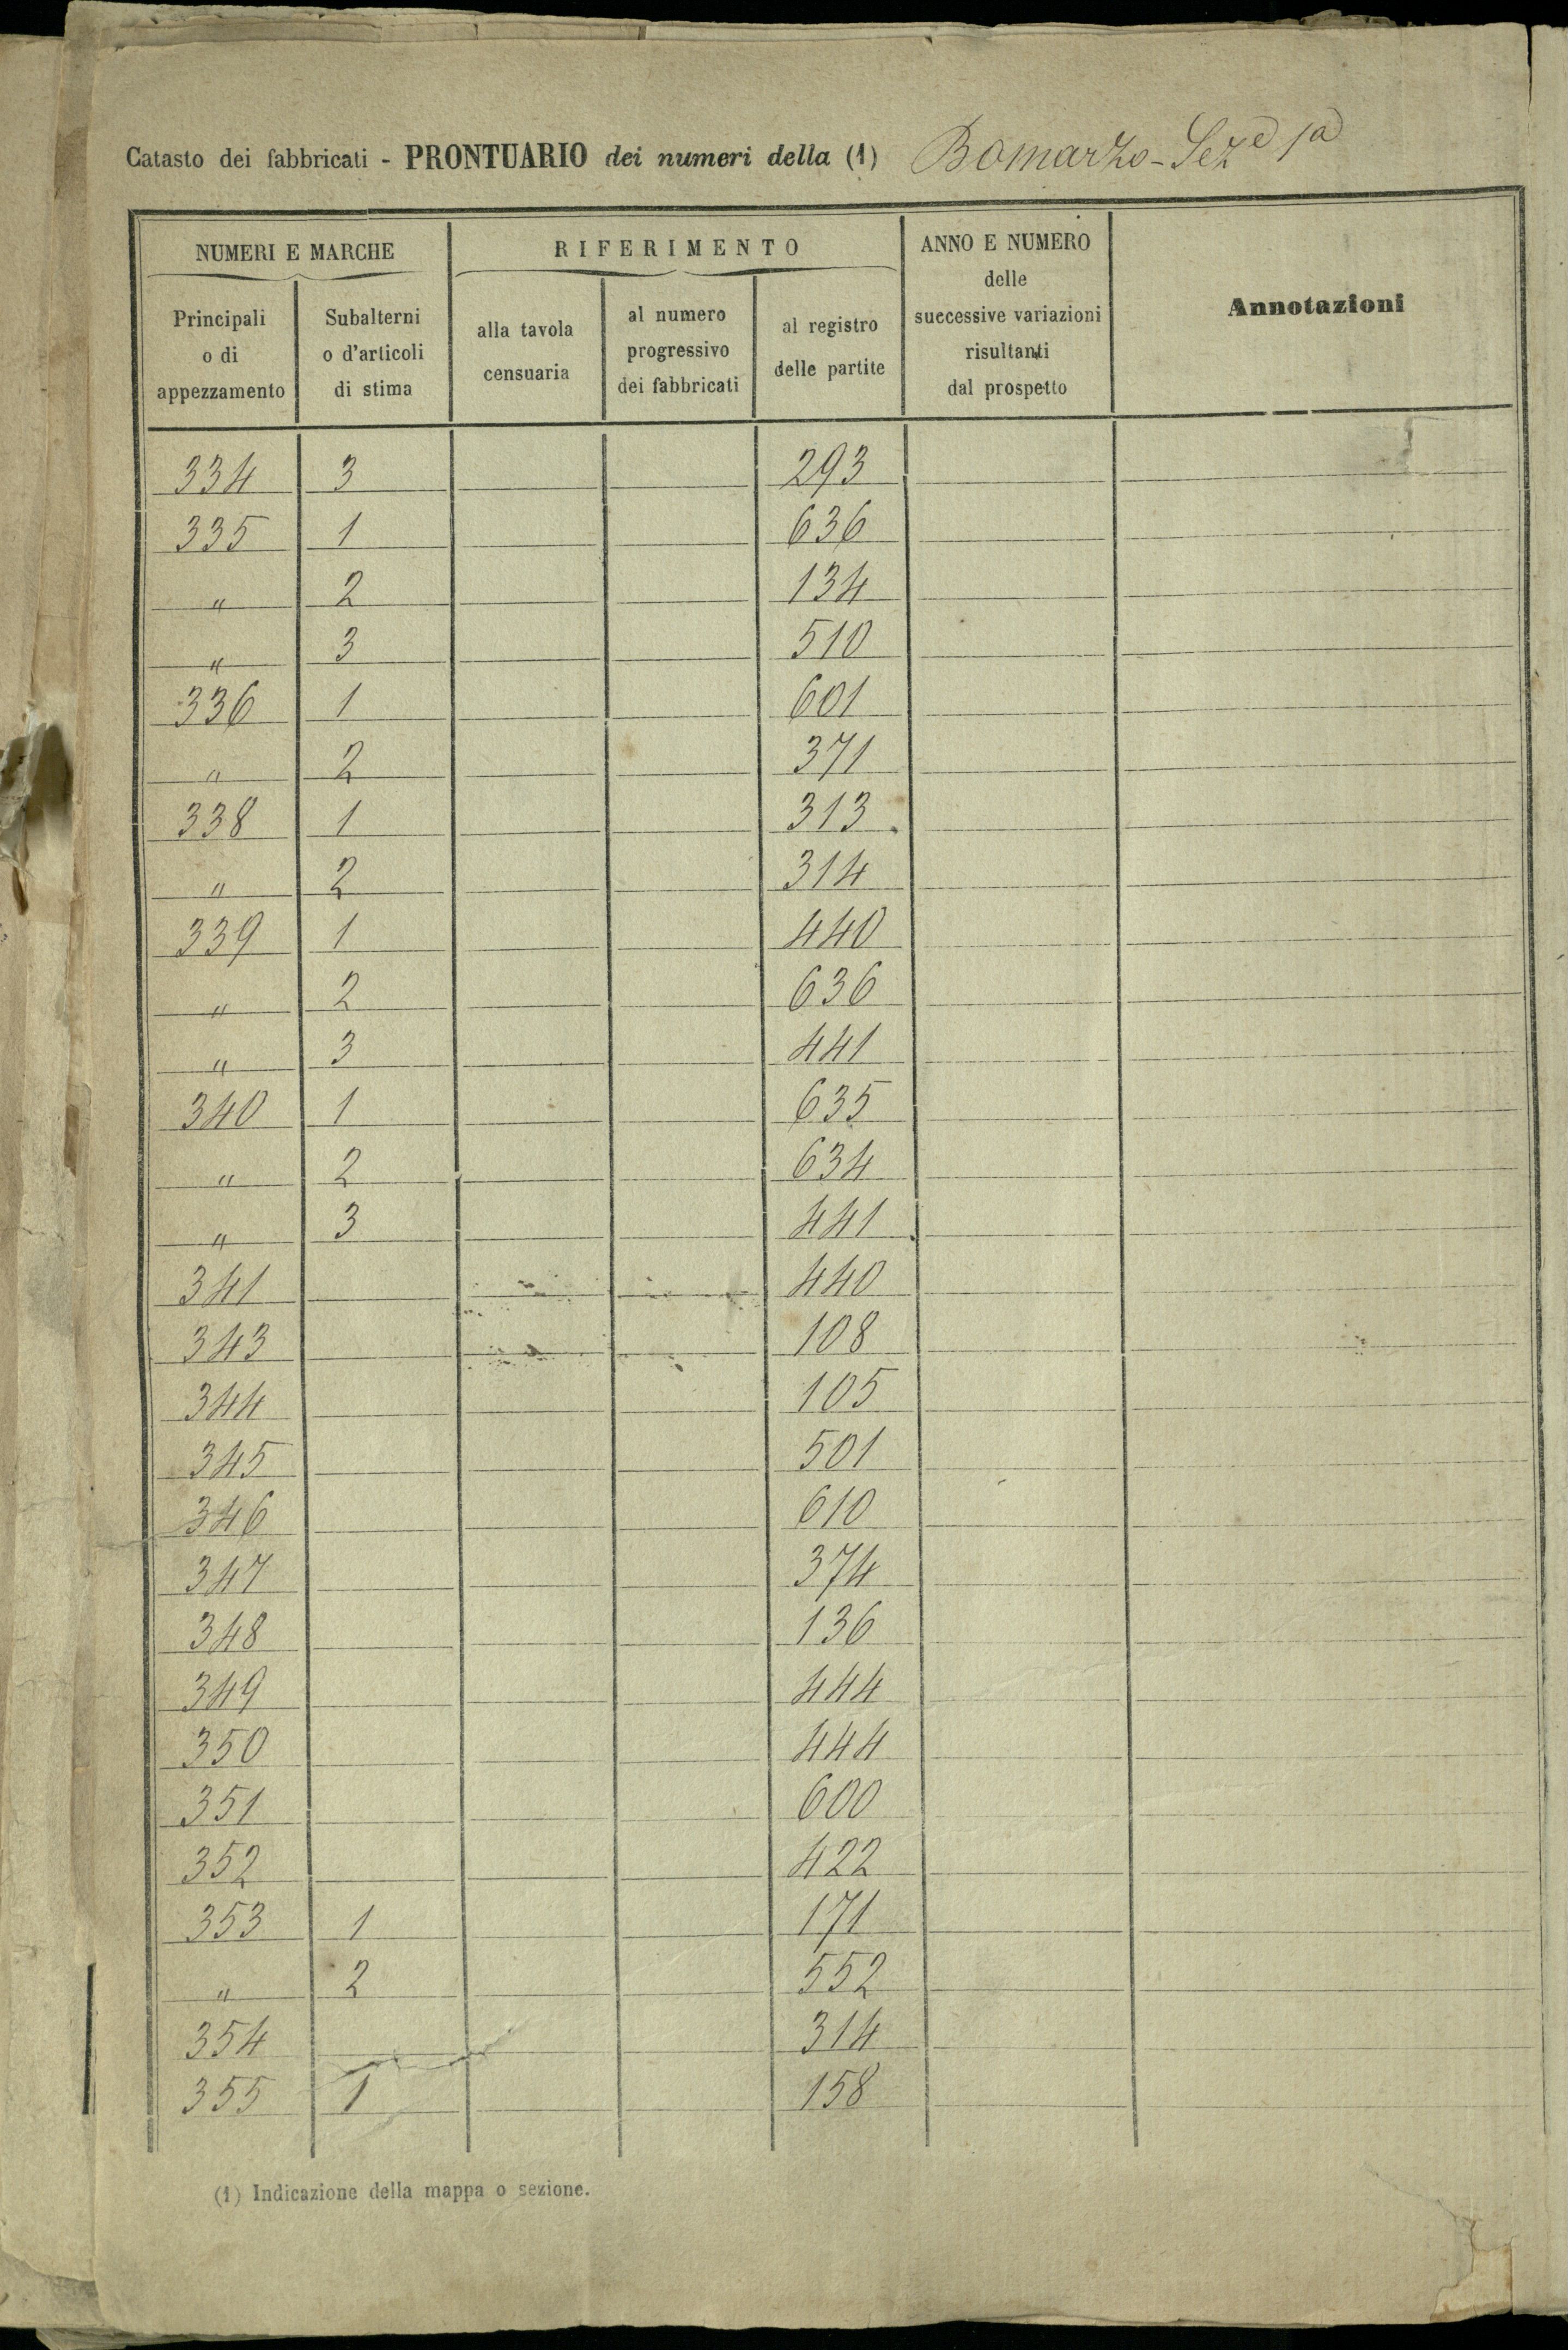 Catasto dei fabbricati - PRONTUARIO dei numeri della (1) Bomarzo - Seze 1a
NUMERI E MARCHE RIFERIMENTO ANNO E NUMERO delle successive variazioni risultanti dal prospetto Annotazioni
Principali o di appezzamento Subalterni o d'articoli di stima alla tavola censuaria al numero progressivo dei fabbricati al registro delle partite
334 3 293
335 1 636
" 2 134
" 3 510
336 1 601
" 2 371
338 1 313
" 2 314
339 1 440
" 2 636
" 3 441
340 1 635
" 2 634
" 3 441
341 440
343 108
344 105
345 501
346 610
347 374
348 136
349 444
350 444
351 600
352 422
353 1 171
" 2 552
354 314
355 1 158
(1) Indicazione della mappa o sezione.